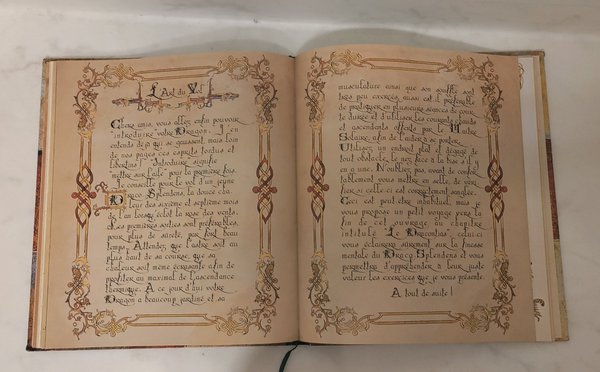 L'Art du Vol
Chers amis, vous allez enfin pouvoir
"introduire" votre Dragon. J'en
entends déjà qui se gaussent, mais loin
de nos pages ces esprits tordus et
libertins! "Introduire" signifie
mettre sur l'aile pour la première fois.
Je conseille pour le vol d'un jeune
Draco Splendens, la douce cha-
leur des sixième et septième mois
de l'an lorsqu'éclot la rose des vents.
Les premières sorties sont préférables,
pour plus de sûreté, par fort beau
temps. Attendez que l'astre soit au
plus haut de sa course, que sa
chaleur soit même écrasante afin de
profiter au maximal de l'ascendance
thermique. A ce jour d'hui votre
Dragon a beaucoup jardiné et sa
musculature ainsi que son souffle sont
très peu exercés, aussi est-il préférable
de pratiquer en plusieurs séances de cour-
te durée et d'utiliser les courants
et ascendants offerts par le
Solaire afin de l'aider à se porter.
Utilisez un endroit plat et dégagé de
tout obstacle, le nez face à la bise s'il y
en a une. N'oubliez pas, avant de confor-
tablement vous mettre en selle, de véri-
fier si celle-ci est correctement sanglée.
Ceci est peut être inhabituel, mais je
vous propose un petit voyage vers la
fin de cet ouvrage au chapitre
intitulé "Le Dracontias", celui-ci
vous éclairera sûrement sur la finesse
mentale du Draco Splendens et vous
permettra d'appréhender à leur juste
valeur les exercices que je vous présente.
A tout de suite!